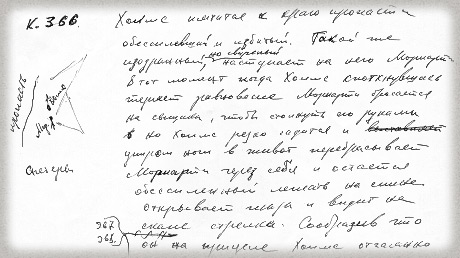 К. 366.
Холмс пятится к краю пропасти
обессилевший и избитый. Такой же
изодранный, но озверелый наступает на него Мориарти
В тот момент когда Холмс споткнувшись
теряет равновесие Мориарти бросается
на сыщика, чтобы столкнуть его руками
но Холмс резко садится и
упором ноги в живот перебрасывает
Мориарти через себя и остается
обессиленный лежать на спине
открывает глаза и видит на
367. скале стрелка. Сообразив что
368. он на прицеле Холмс отчаянно
пропасть